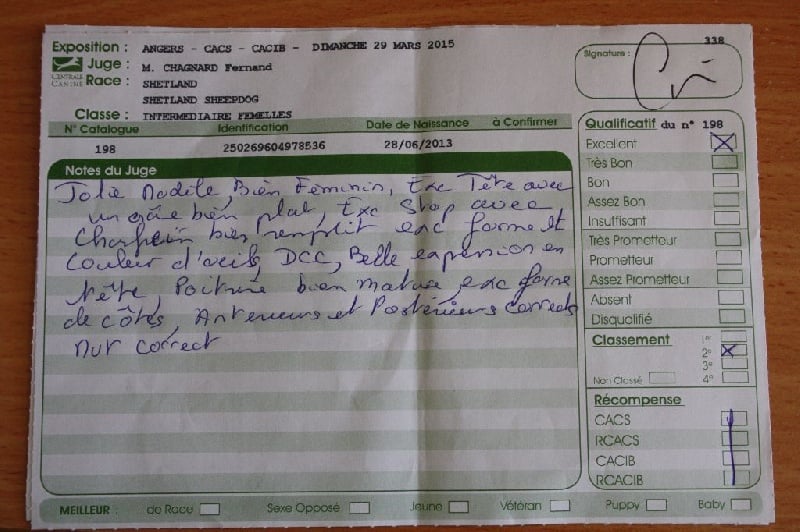 338
Exposition : ANGERS - CACS - CACIB - DIMANCHE 29 MARS 2015
Juge : M. CHAGNARD Fernand
CENTRALE CANINE
Race : SHETLAND
SHETLAND SHEEPDOG
Classe : INTERMEDIAIRE FEMELLES
Signature :
N° Catalogue Identification Date de Naissance à Confirmer
198 250269604978536 28/06/2013
Notes du Juge
Jolie Modèle, Bien Féminin, Exc Tête avec
un crâne bien plat, Exc Stop avec
bien remplit exc forme et
couleur d'oeils, DCC, Belle expression en
tête, Poitrine bien mature exc forme
de côtes, Anterieurs et Postérieurs corrects
Mut correct
Qualificatif du n° 198
Excellent
Très Bon
Bon
Assez Bon
Insuffisant
Très Prometteur
Prometteur
Assez Prometteur
Absent
Disqualifié
Classement
1e
2e
3e
Non Classé 4e
Récompense
CACS
RCACS
CACIB
RCACIB
MEILLEUR : de Race Sexe Opposé Jeune Vétéran Puppy Baby